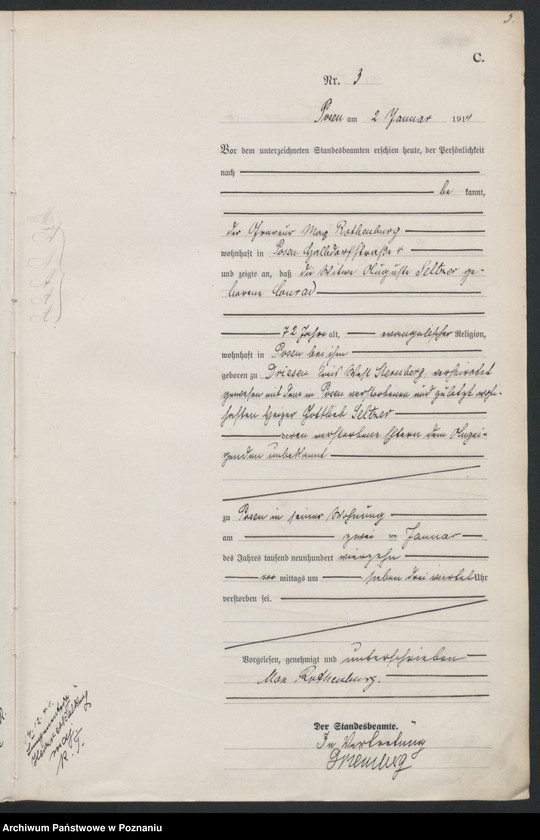 3.
C.
Nr. 3
Posen am 2 Januar 1914
Vor dem unterzeichneten Standesbeamten erschien heute, der Persönlichkeit
nach
be kannt,
der Max Rothenburg
wohnhaft in Posen
und zeigte an, daß die Witwe Auguste Seltzer ge-
borene Conrad
72 Jahre alt, evangelischer Religion,
wohnhaft in Posen bei ihm
geboren zu Driesen Kreis West Sternberg, verheiratet
gewesen mit dem in Posen verstorbenen und zuletzt wohn-
haften Heizer Gottlieb Seltzer
deren verstorbene Eltern dem Anzei-
genden unbekannt
zu Posen in seiner Wohnung
am zwei ten Januar
des Jahres tausend neunhundert vierzehn
vor mittags um sieben drei viertel Uhr
verstorben sei.
Vorgelesen, genehmigt und unterschrieben
Max Rothenburg.
Der Standesbeamte.
In Vertretung
Archiwum Państwowe w Poznaniu